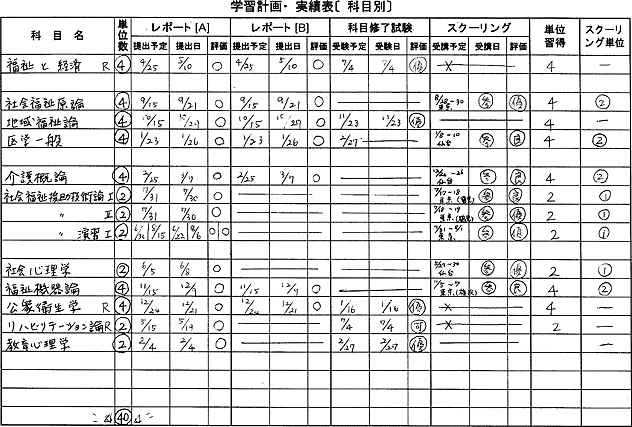 学習計画・実績表〔科目別〕
科目名 単位数 レポート[A] レポート[B] 科目修了試験 スクーリング 単位習得 スクーリング単位
提出予定 提出日 評価 提出予定 提出日 評価 受験予定 受験日 評価 受講予定 受講日 評価
福祉と経済 R ④ 4/25 5/10 ○ 4/25 5/10 ○ 7/4 7/4 優 × 4 —
社会福祉原論 ④ 9/15 9/21 ○ 9/15 9/21 ○ 東京 参 優 4 ②
地域福祉論 ④ 10/15 10/27 ○ 10/15 10/27 ○ 11/23 11/23 優 4 —
医学一般 ④ 1/23 1/26 ○ 1/23 1/26 ○ 2/27 1/8-10 仙台 参 良 4 ②
介護概論 ④ 2/25 3/7 ○ 2/25 3/7 ○ 仙台 参 良 4 ②
社会福祉援助技術論 I ② 7/31 7/30 ○ 7/17-18 東京 参 良 2 ①
〃 II ② 7/31 7/30 ○ 東京 参 優 2 ①
〃 演習 I ② 8/15 8/6 ○ ○ 東京 参 優 2 ①
社会心理学 ② 6/5 6/8 ○ 仙台 参 優 2 ①
福祉機器論 ④ 11/15 12/9 ○ 11/15 12/9 ○ 東京 参 良 4 ②
公衆衛生学 R ④ 12/24 12/21 ○ 12/24 12/21 ○ 1/16 1/16 優 × 4 —
リハビリテーション論 R ② 5/15 5/19 ○ 7/4 7/4 可 × 2 —
教育心理学 ② 2/4 2/4 ○ 2/27 2/27 優 —
㊵